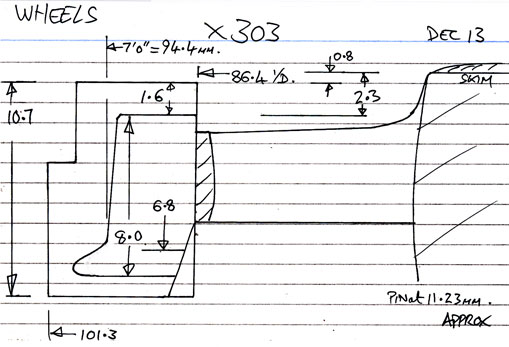 WHEELS
X303
DEC 13
7'0" = 94.4MM.
86.4 I/D.
0.8
SKIM
1.6
2.3
10.7
6.8
8.0
PIN at 11.23MM.
APPROX
101.3